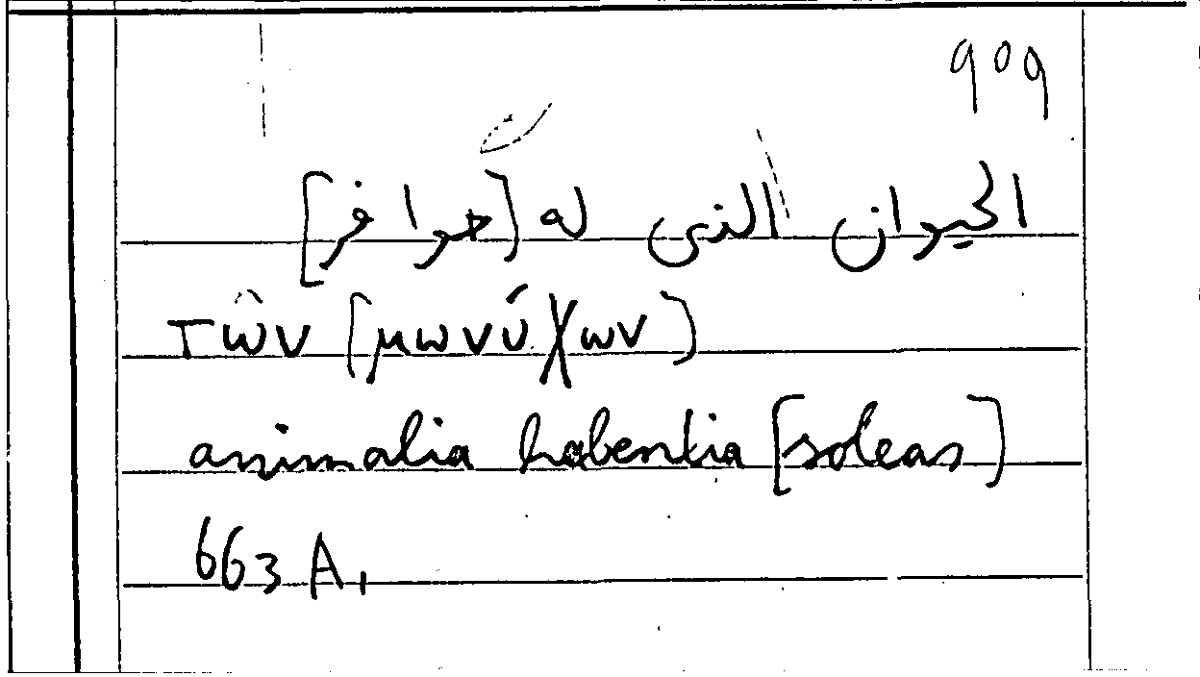 909
الحيوان الذى له [حوافر]
τῶν [μωνύχων]
animalia habentia [soleas]
663 A,